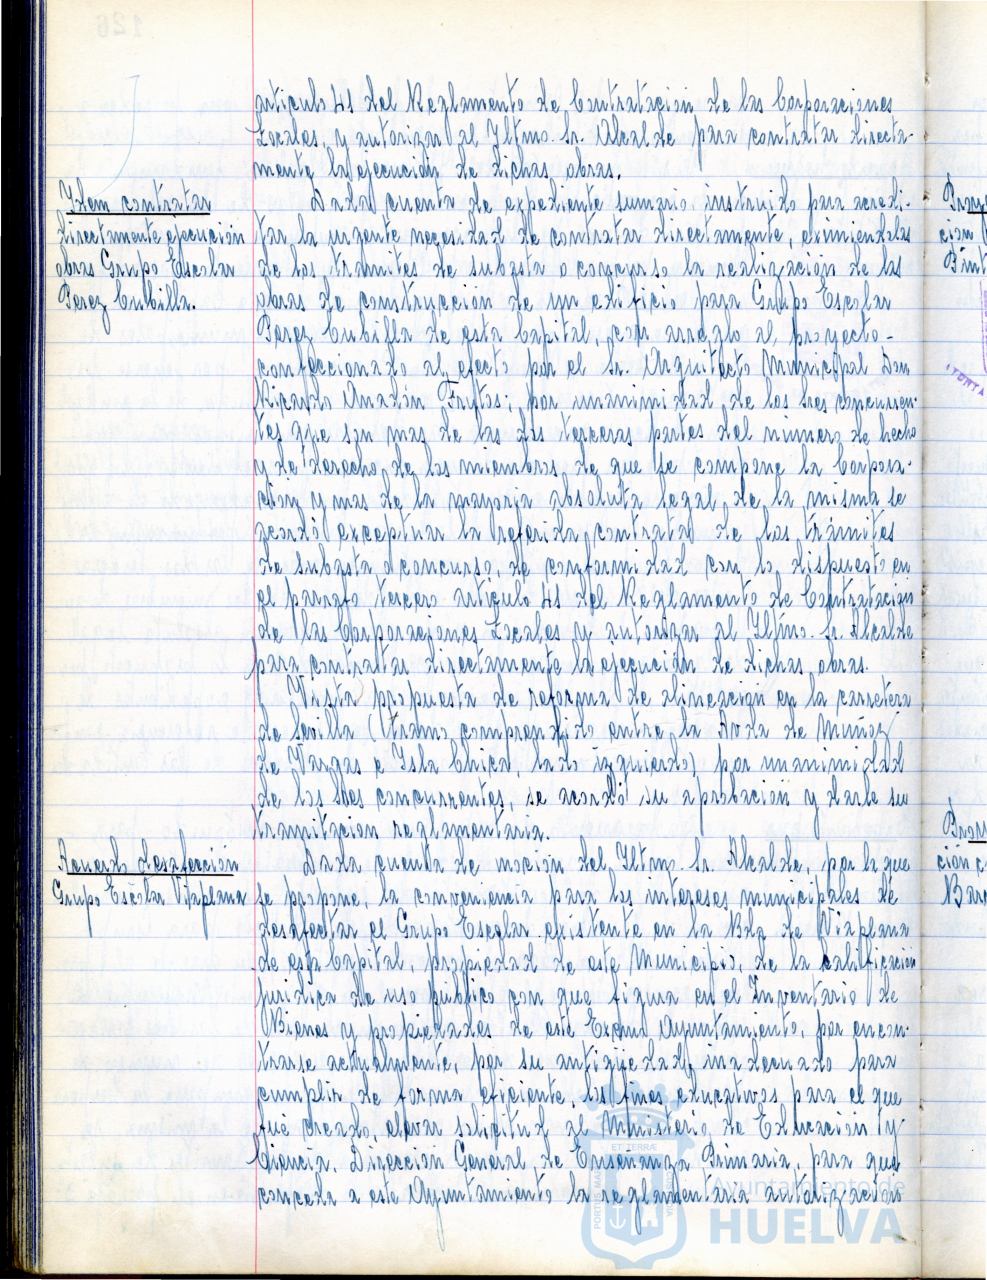 articulo 41 del Reglamento de Contratacion de las Corporaciones
Locales, y autorizar al Iltmo. Sr. Alcalde para contratar directa-
mente la ejecución de dichas obras.
Idem contratar
directamente ejecución
obras Grupo Escolar
Perez Cubilla.
Dada cuenta de expediente sumario instruido para acredi-
tar la urgente necesidad de contratar directamente, eximiendolas
de los trámites de subasta o concurso la realización de las
obras de construcción de un edificio para Grupo Escolar
Perez Cubilla de esta Capital, con arreglo al proyecto
confeccionado al efecto por el Sr. Arquitecto Municipal Don
Ricardo Anadón Frutos, por unanimidad de los Sres concurren-
tes que son mas de las dos terceras partes del número de hecho
y de derecho de los miembros de que se compone la Corpora-
ción y mas de la mayoria absoluta legal de la misma se
acordó exceptuar la referida contrata de los trámites
de subasta o concurso, de conformidad con lo dispuesto en
el parrafo tercero articulo 41 del Reglamento de Contratacion
de las Corporaciones Locales y autorizar al Iltmo. Sr. Alcalde
para contratar directamente la ejecución de dichas obras.
Vista propuesta de reforma de alineacion en la carretera
de Sevilla (tramo comprendido entre la Avda de Muñoz
de Vargas e Isla Chica, lado izquierdo) por unanimidad
de los Sres concurrentes, se acordó su aprobación y darle su
tramitacion reglamentaria.
Acuerdo desafección
Grupo Escolar Viaplana
Dada cuenta de moción del Iltmo. Sr. Alcalde, por la que
se propone, la conveniencia para los intereses municipales de
desafectar el Grupo Escolar existente en la Bda de Viaplana
de esta Capital, propiedad de este Municipio, de la calificacion
juridica de uso público con que figura en el Inventario de
Bienes y propiedades de este Excmo Ayuntamiento, por encon-
trarse actualmente, por su antiguedad, inadecuado para
cumplir de forma eficiente, los fines educativos para el que
fué creado, elevar solicitud al Ministerio de Educacion y
Ciencia. Direccion General de Enseñanza Primaria, para que
conceda a este Ayuntamiento la reglamentaria autorización
Ayuntamiento de
HUELVA